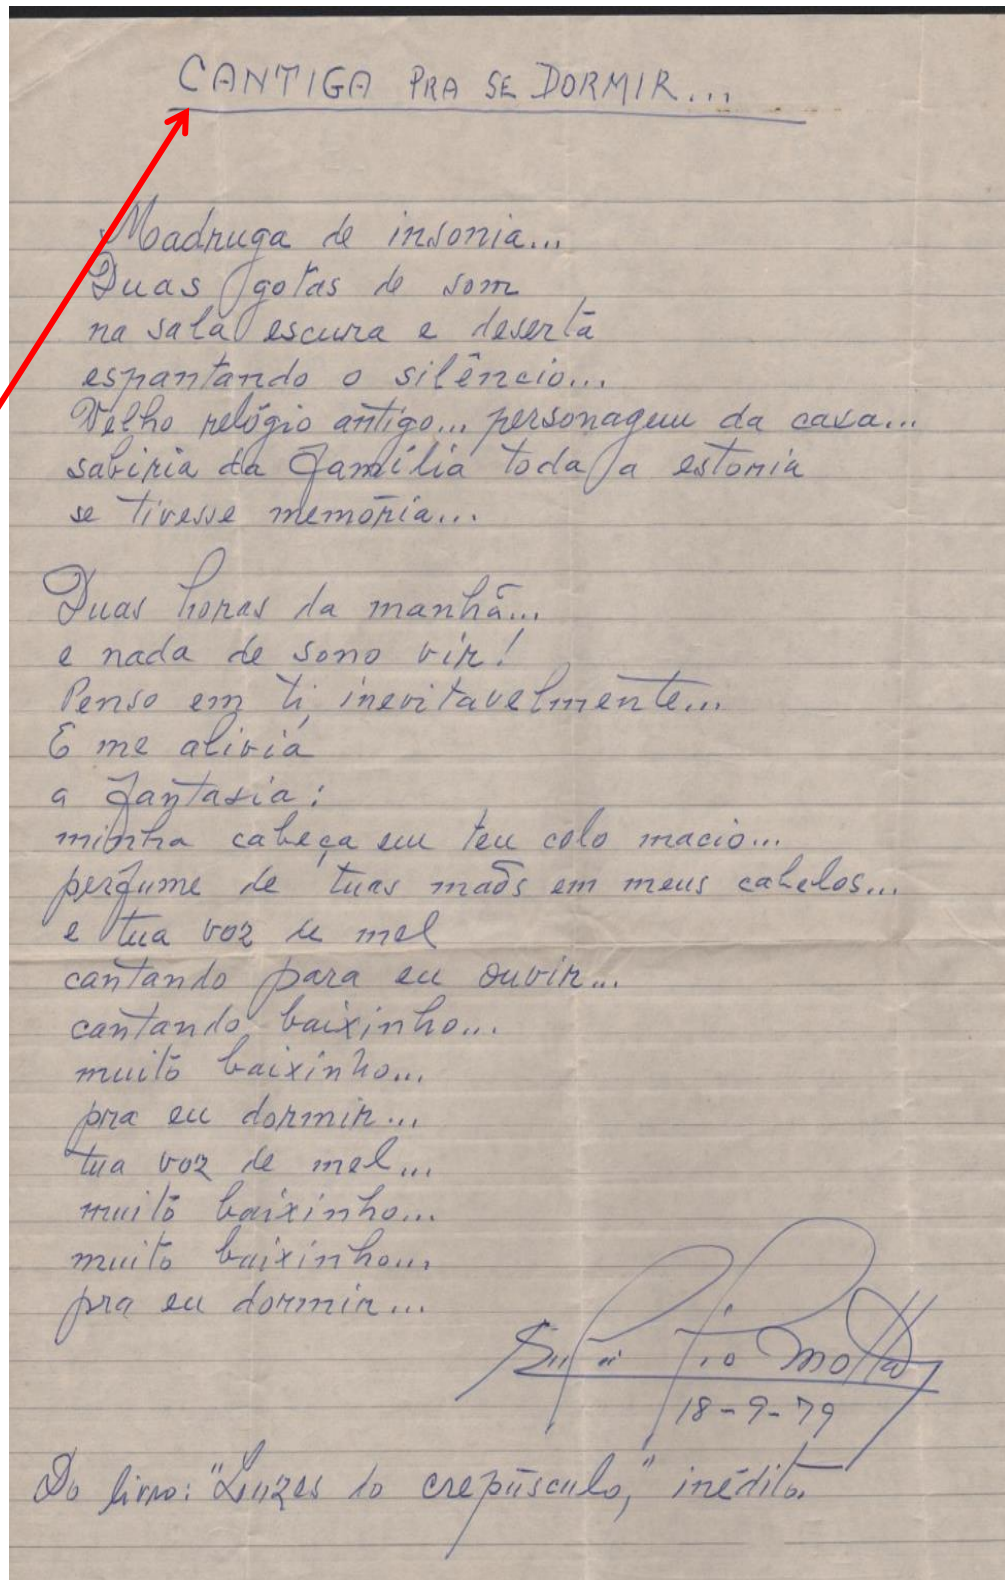 CANTIGA PRA SE DORMIR...
Madruga de insonia...
Duas gotas de som
na sala escura e deserta
espantando o silêncio...
Velho relógio antigo... personagem da casa...
sabiria da Família toda a estoria
se tivesse memória...
Duas horas da manhã...
e nada de sono vir!
Penso em ti, inevitavelmente...
E me alivia
a fantasia:
minha cabeça em teu colo macio...
perfume de tuas maõs em meus cabelos...
e tua voz de mel
cantando para eu ouvir...
cantando baixinho...
muito baixinho...
pra eu dormir...
tua voz de mel...
muito baixinho...
muito baixinho...
pra eu dormir...
Motta
18-9-79
Do livro: "Luzes do crepúsculo," inédito.